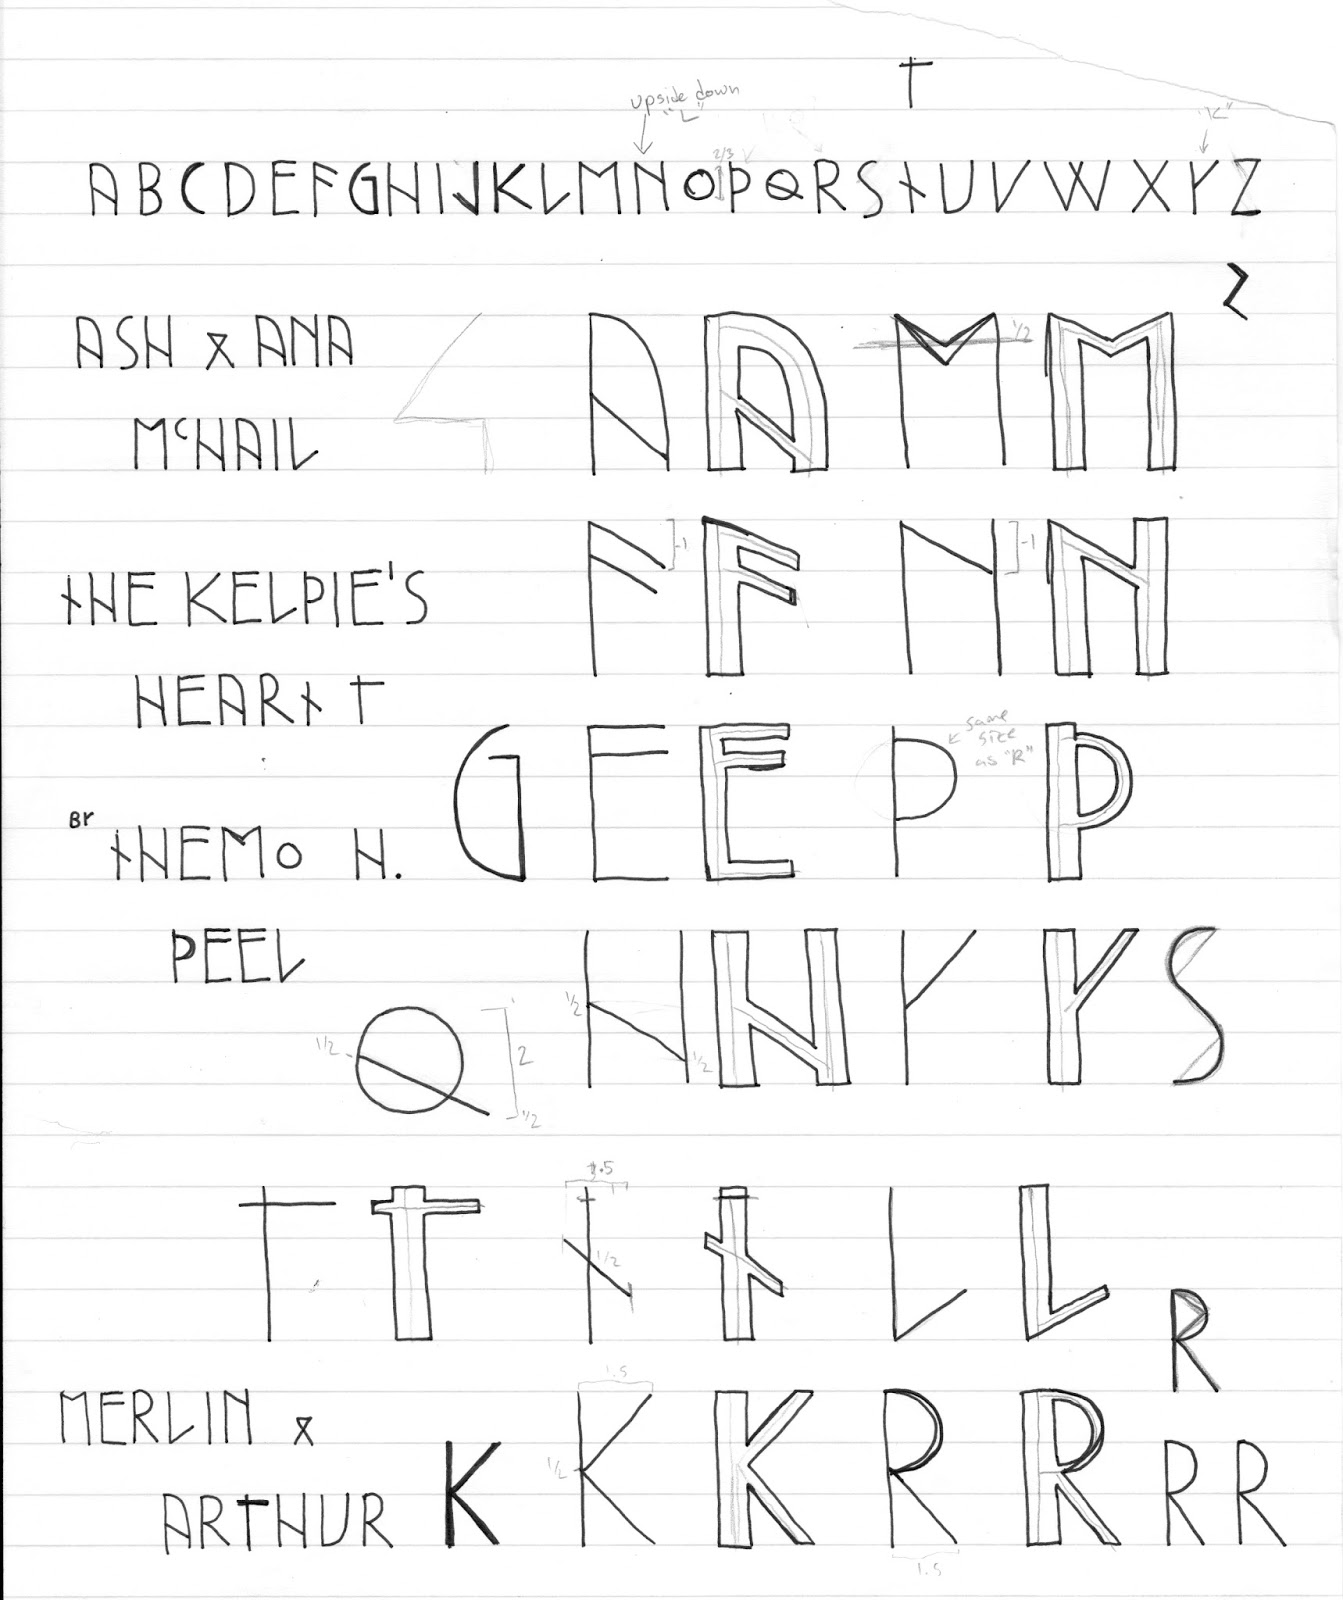 T
upside down
"L"
"K"
2/3
ABCDEFGHIJKLMNOPQRSTUVWXYZ
Z
ASH & ANA
McNAIL
A A M M 1/2
F -1 F N -1 N
THE KELPIE'S
HEART T
G E E P P
same
size
as "R"
BY
THEMO H.
PEEL
1/2 H 1/2 H Y Y S
1/2 Q 2
1/2
1.5
T T T 1/2 T L L
R
MERLIN &
ARTHUR
1.5
K 1/2 K K R R R R
1.5